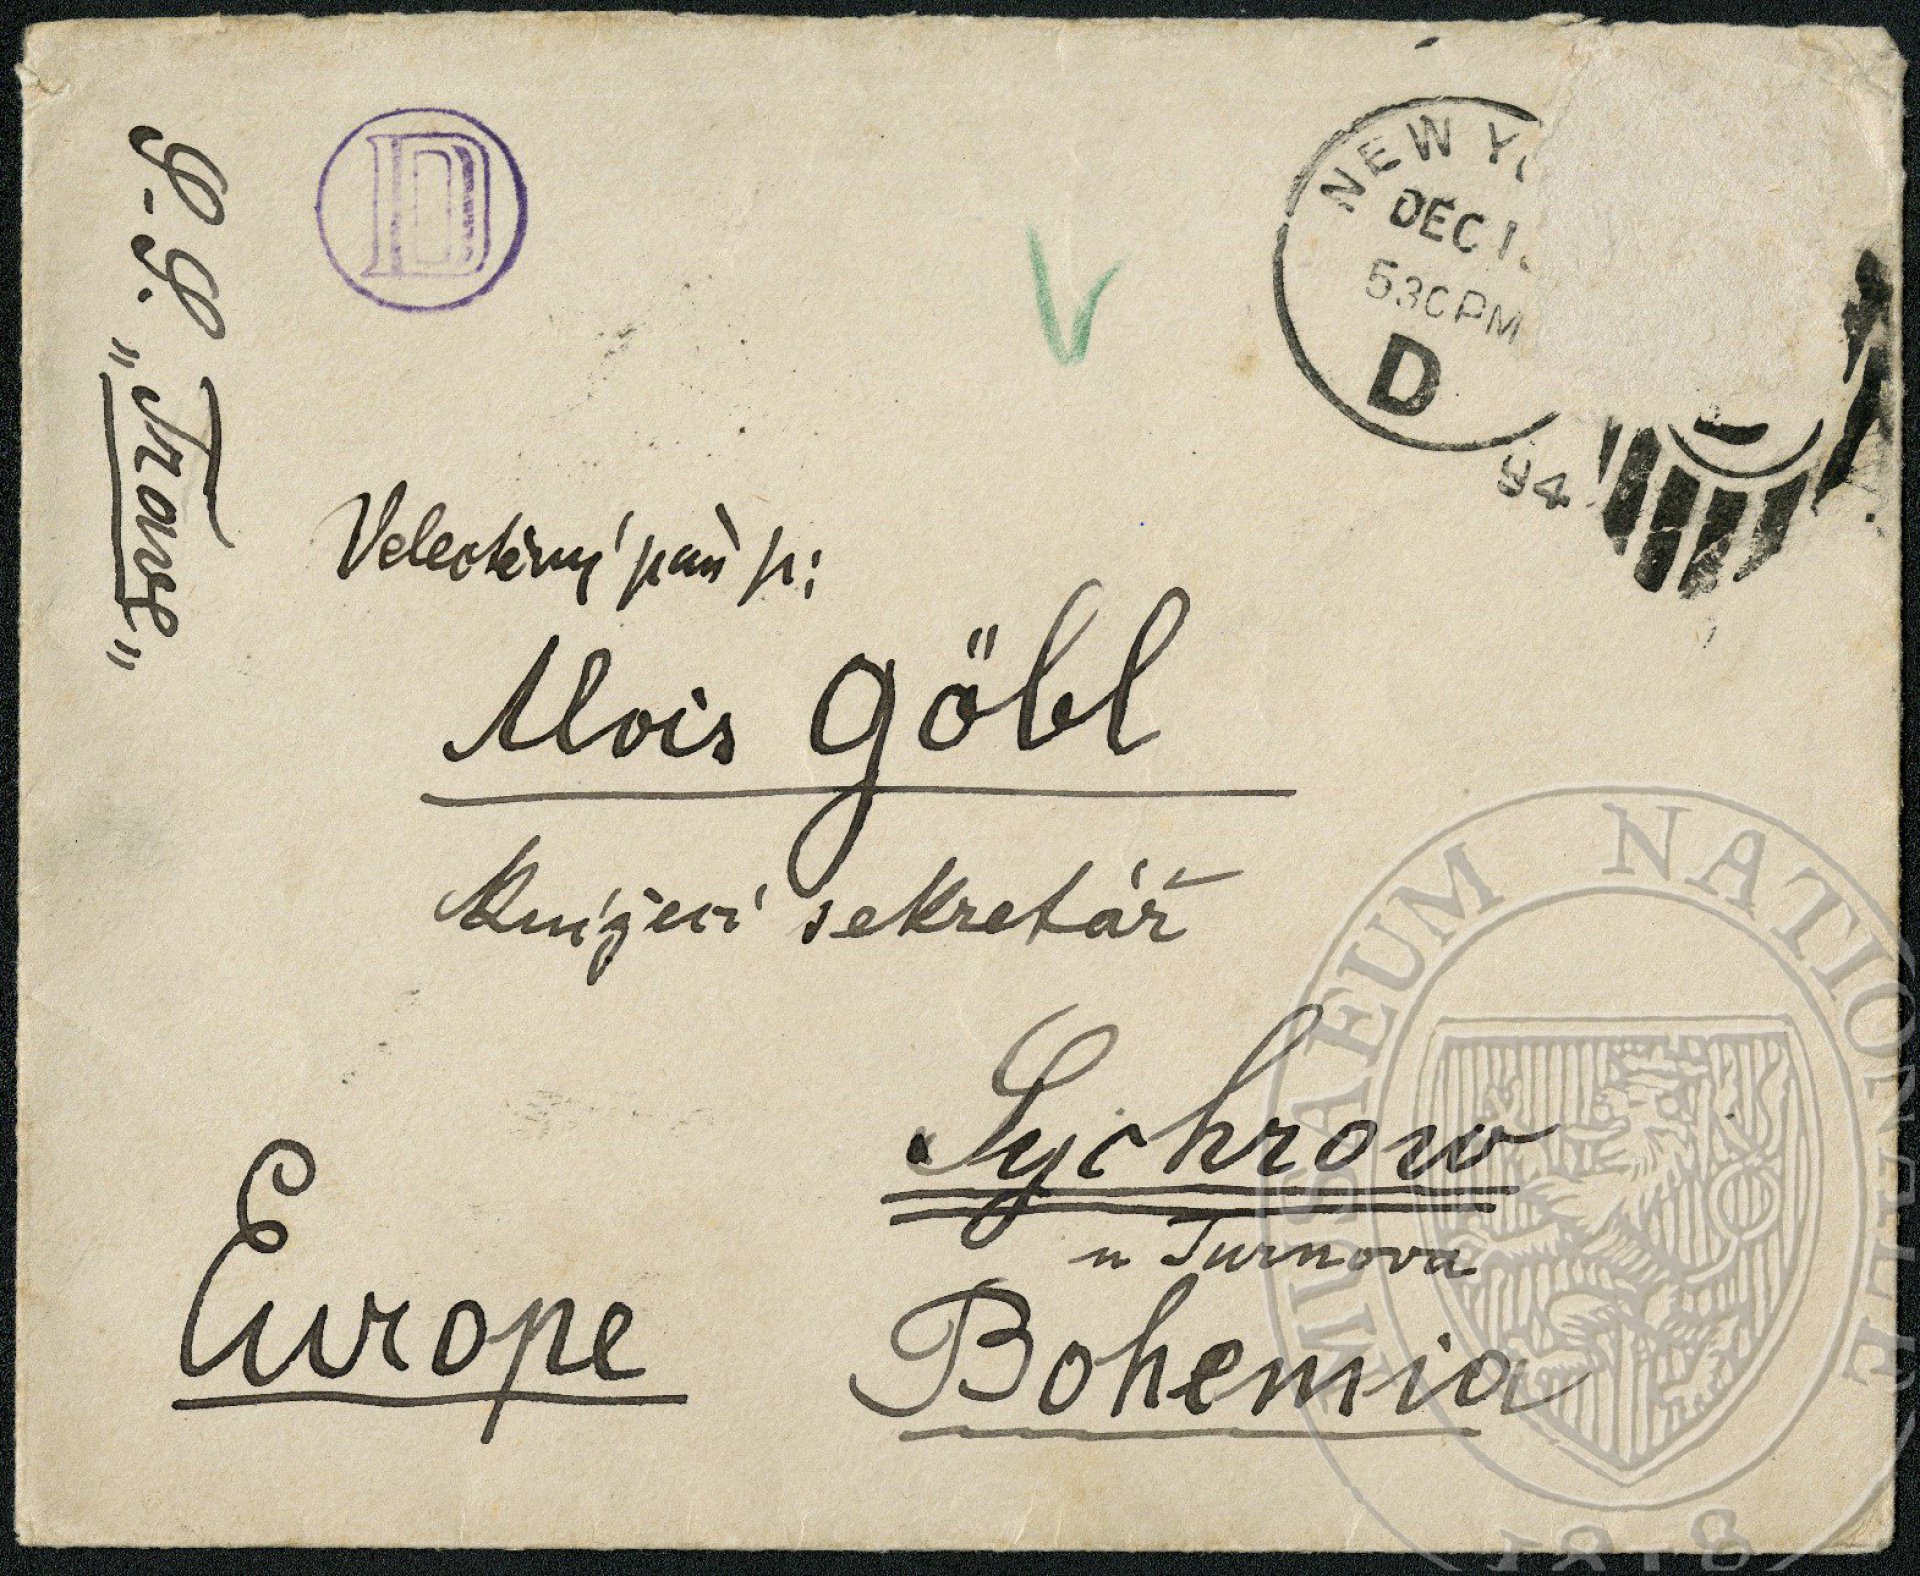 S. S. „Trave"
D
NEW YO
DEC 1
530PM
D
94
Velectěný pán p:
Alois Göbl
Knížecí sekretář
Sychrow
u Turnova
Europe
Bohemia
MUSAEUM NATIONALE
1818